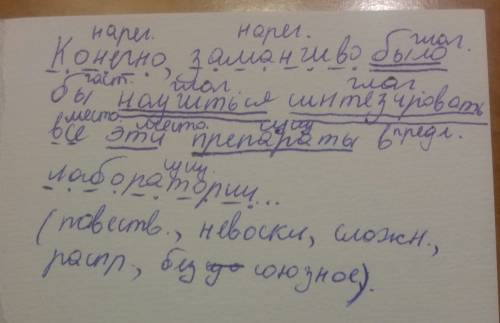 нареч. нареч. глаг.
Конечно, заманчиво было
част. глаг. глаг.
бы научиться синтезировать
место. место. сущ. предл.
все эти препараты в
сущ.
лаборатории...
(повеств., невоскл, сложн.,
распр., без союзное).